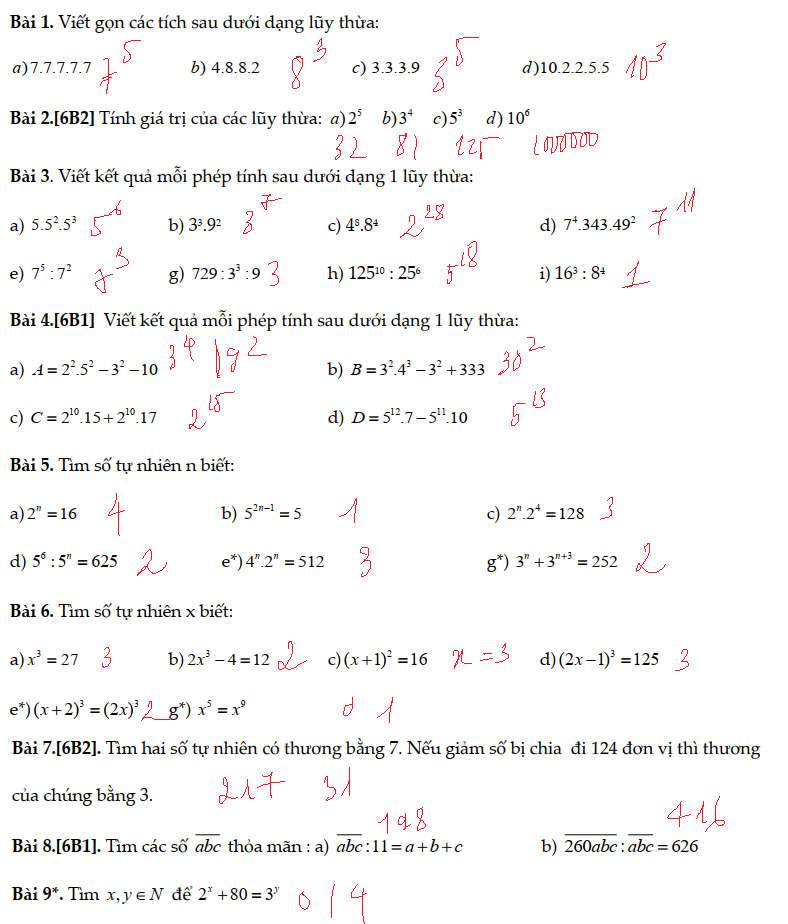 Bài 1. Viết gọn các tích sau dưới dạng lũy thừa:
a) 7.7.7.7.7 7⁵ b) 4.8.8.2 8³ c) 3.3.3.9 3⁵ d) 10.2.2.5.5 10³
Bài 2.[6B2] Tính giá trị của các lũy thừa: a) 2⁵ b) 3⁴ c) 5³ d) 10⁶
32 81 125 1000000
Bài 3. Viết kết quả mỗi phép tính sau dưới dạng 1 lũy thừa:
a) 5.5².5³ 5⁶ b) 3³.9² 3⁷ c) 4⁸.8⁴ 2²⁸ d) 7⁴.343.49² 7¹¹
e) 7⁵ : 7² 7³ g) 729 : 3³ : 9 3 h) 125¹⁰ : 25⁶ 5¹⁸ i) 16³ : 8⁴ 1
Bài 4.[6B1] Viết kết quả mỗi phép tính sau dưới dạng 1 lũy thừa:
a) A = 2².5² − 3² − 10 3⁴ | 9² b) B = 3².4³ − 3² + 333 30²
c) C = 2¹⁰.15 + 2¹⁰.17 2¹⁵ d) D = 5¹².7 − 5¹¹.10 5¹³
Bài 5. Tìm số tự nhiên n biết:
a) 2ⁿ = 16 4 b) 5²ⁿ⁻¹ = 5 1 c) 2ⁿ.2⁴ = 128 3
d) 5⁶ : 5ⁿ = 625 2 e*) 4ⁿ.2ⁿ = 512 3 g*) 3ⁿ + 3ⁿ⁺³ = 252 2
Bài 6. Tìm số tự nhiên x biết:
a) x³ = 27 3 b) 2x³ − 4 = 12 2 c) (x + 1)² = 16 x = 3 d) (2x − 1)³ = 125 3
e*) (x + 2)³ = (2x)³ 2 g*) x⁵ = x⁹ 0 1
Bài 7.[6B2]. Tìm hai số tự nhiên có thương bằng 7. Nếu giảm số bị chia đi 124 đơn vị thì thương
của chúng bằng 3. 217 31
198 416
Bài 8.[6B1]. Tìm các số abc thỏa mãn : a) abc : 11 = a + b + c b) 260abc : abc = 626
Bài 9*. Tìm x, y ∈ N để 2ˣ + 80 = 3ʸ 0 | 4